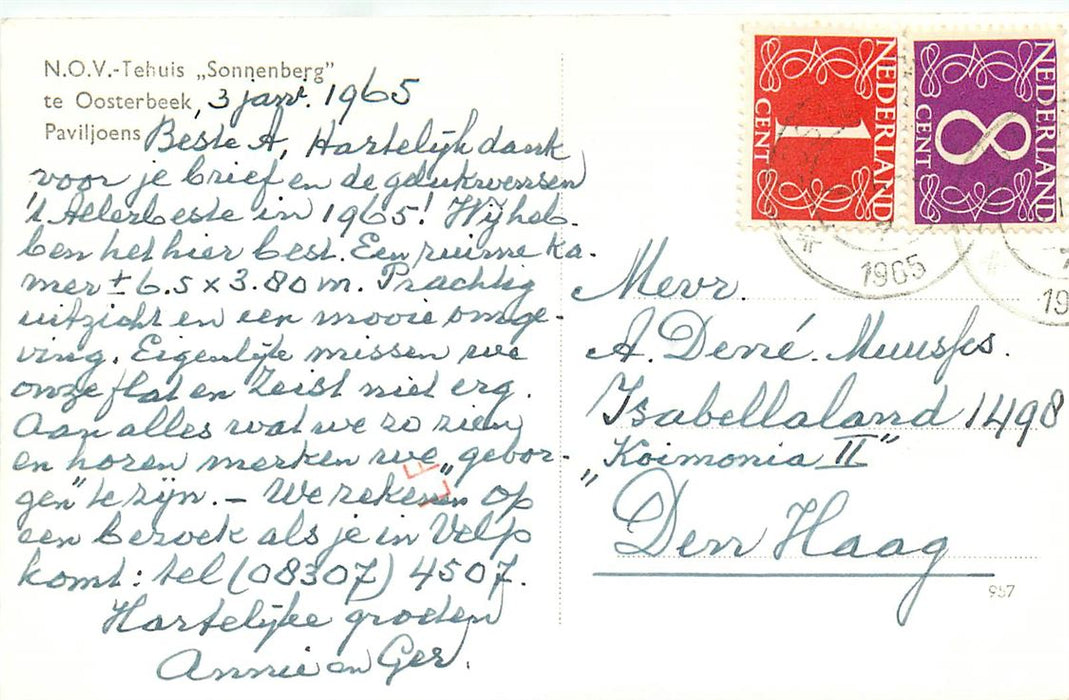 N.O.V.-Tehuis „Sonnenberg"
te Oosterbeek, 3 janr. 1965
Paviljoens Beste A, Hartelijk dank
voor je brief en de gelukwensen
't Allerbeste in 1965! Wij heb-
ben het hier best. Een ruime ka-
mer ± 6.5 x 3.80 m. Prachtig
uitzicht en een mooie omge-
ving. Eigenlijk missen we
onze flat en Zeist niet erg.
Aan alles wat we zo zien
en horen merken we „gebor-
gen" te zijn. – We rekenen op
een bezoek als je in Velp
komt: tel (08307) 4507.
Hartelijke groeten
Annie en Ger.
NEDERLAND
1
CENT
NEDERLAND
8
CENT
1965
19
Mevr.
A. Derré. Muusfes.
Isabellaland 1498
„Koimonia II"
Den Haag
957